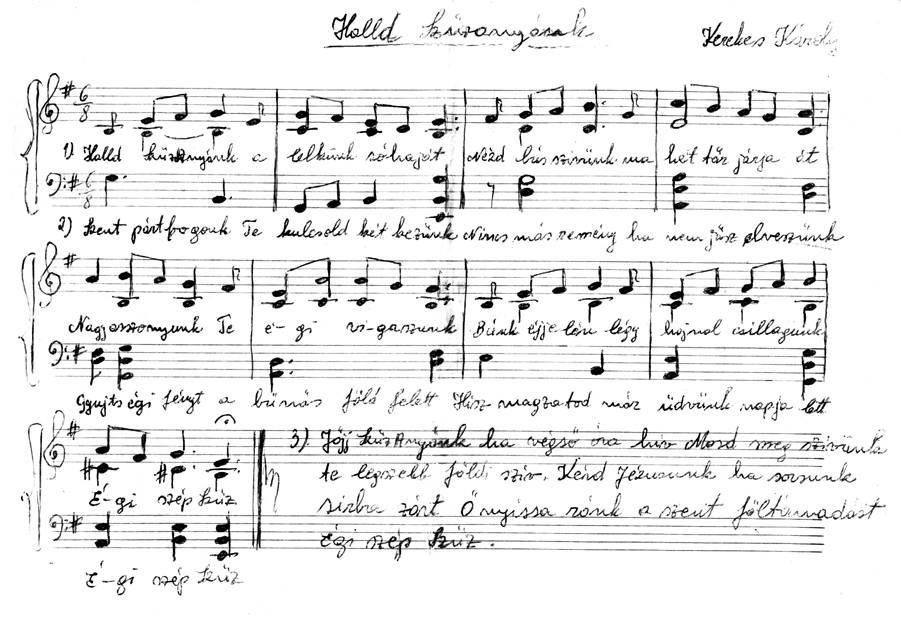 Halld Szűzanyánk
Kerekes Károly
1) Halld szűzAnyánk a lelkünk sóhaját Nézd bús szívünk ma hét tőr járja át
2) Szent pártfogónk Te kulcsold két kezünk Nincs más remény ha nem jösz elveszünk
Nagyasszonyunk Te é-gi vi-gaszunk Bűnk éjje-lén légy hajnal csillagunk
Gyujts égi fényt a bűnös föld felett Hisz magzatod már üdvünk napja lett
É-gi szép szűz
É-gi szép szűz
3) Jöjj szűzAnyánk ha végső óra hív Mosd meg szivünk
te legszebb földi szív. Kérd Jézusunk ha sorsunk
sirba zárt Ő nyissa ránk a szent föltámadást
Égi szép Szűz.